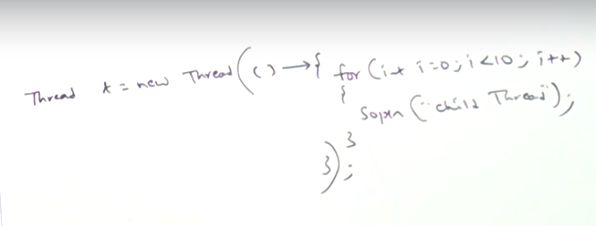 Thread t = new Thread(() → { for (int i=0; i<10; i++)
{
Sopln("child Thread");
}
});